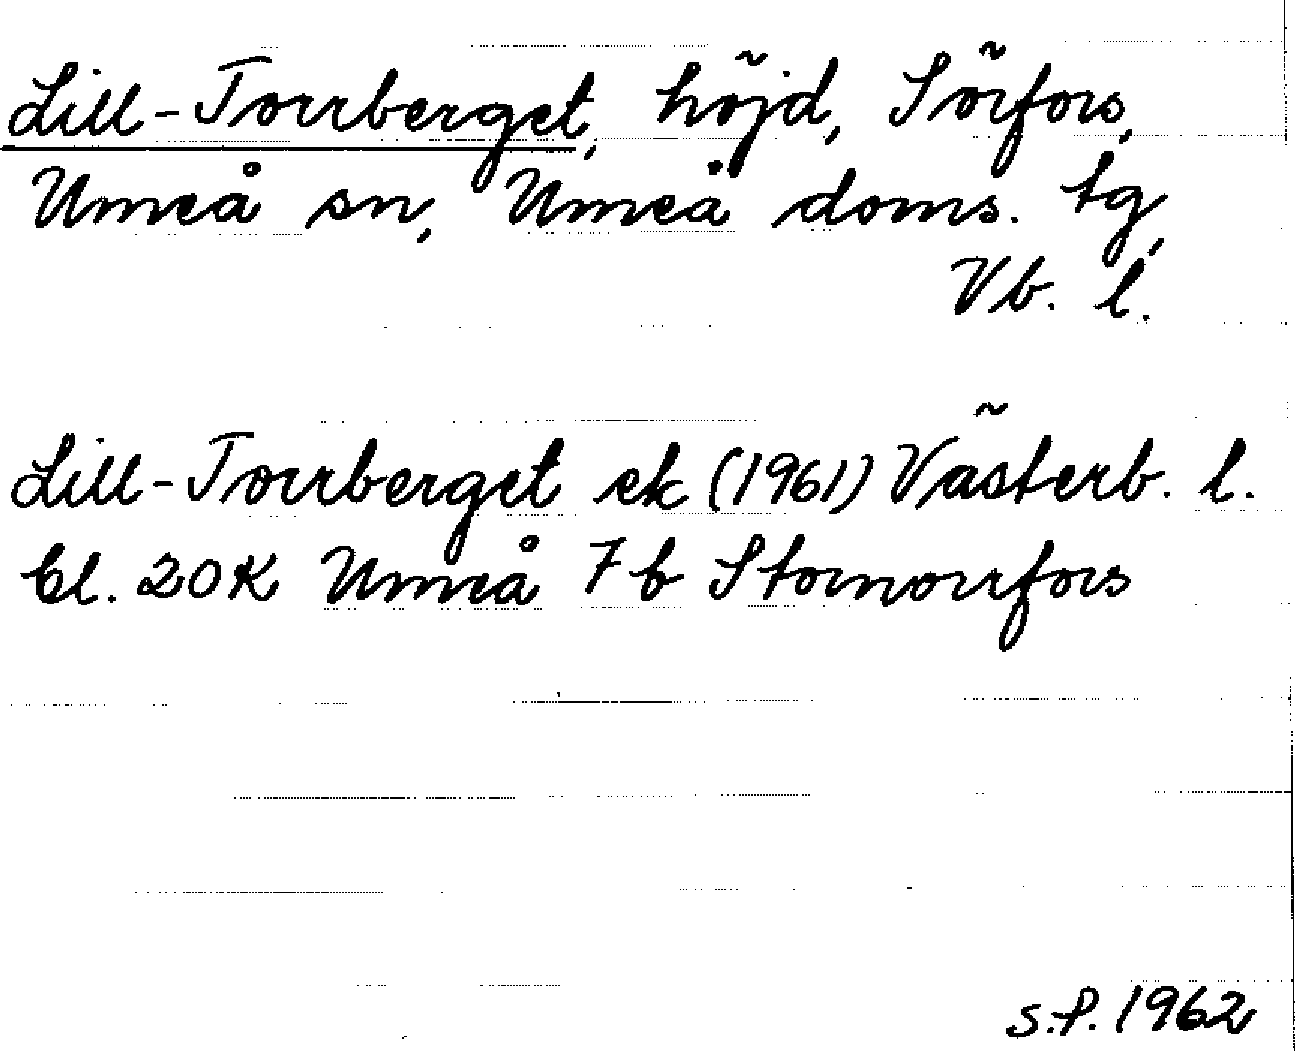 Lill-Torrberget, höjd, Sörfors,
Umeå sn, Umeå doms. tg,
Vb. l.
Lill-Torrberget ek (1961) Västerb. l.
bl. 20K Umeå 7b Stornorrfors
S.P. 1962